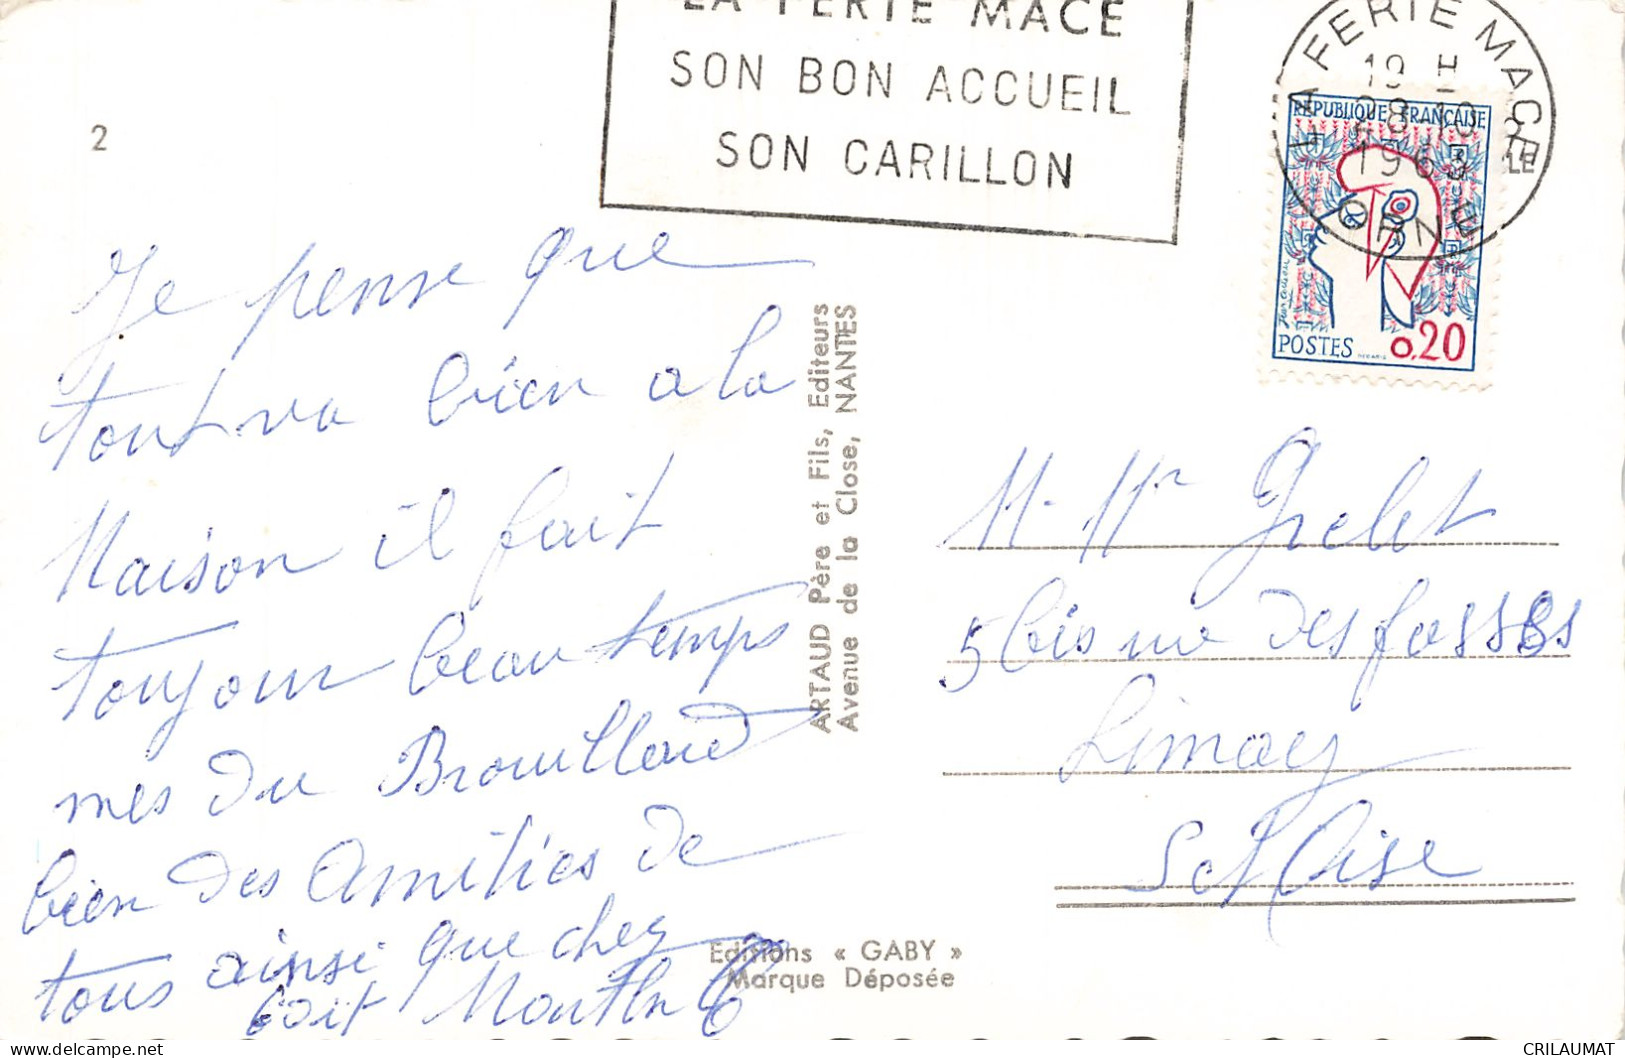 LA FERTE MACE
SON BON ACCUEIL
SON CARILLON
LA FERTE MACE
19 H
28 10
1963
ORNE
REPUBLIQUE FRANÇAISE
POSTES 0,20
2
Je pense que
tout va bien a la
Maison il fait
toujour beau temps
mes du Brouillard
bien des Amitiés de
tous ainsi que chez
ARTAUD Père et Fils, Editeurs
Avenue de la Close, NANTES
Editions « GABY »
Marque Déposée
M. Mr Grelet
5 bis rue des fosses
Limay
S et Oise
CRILAUMAT